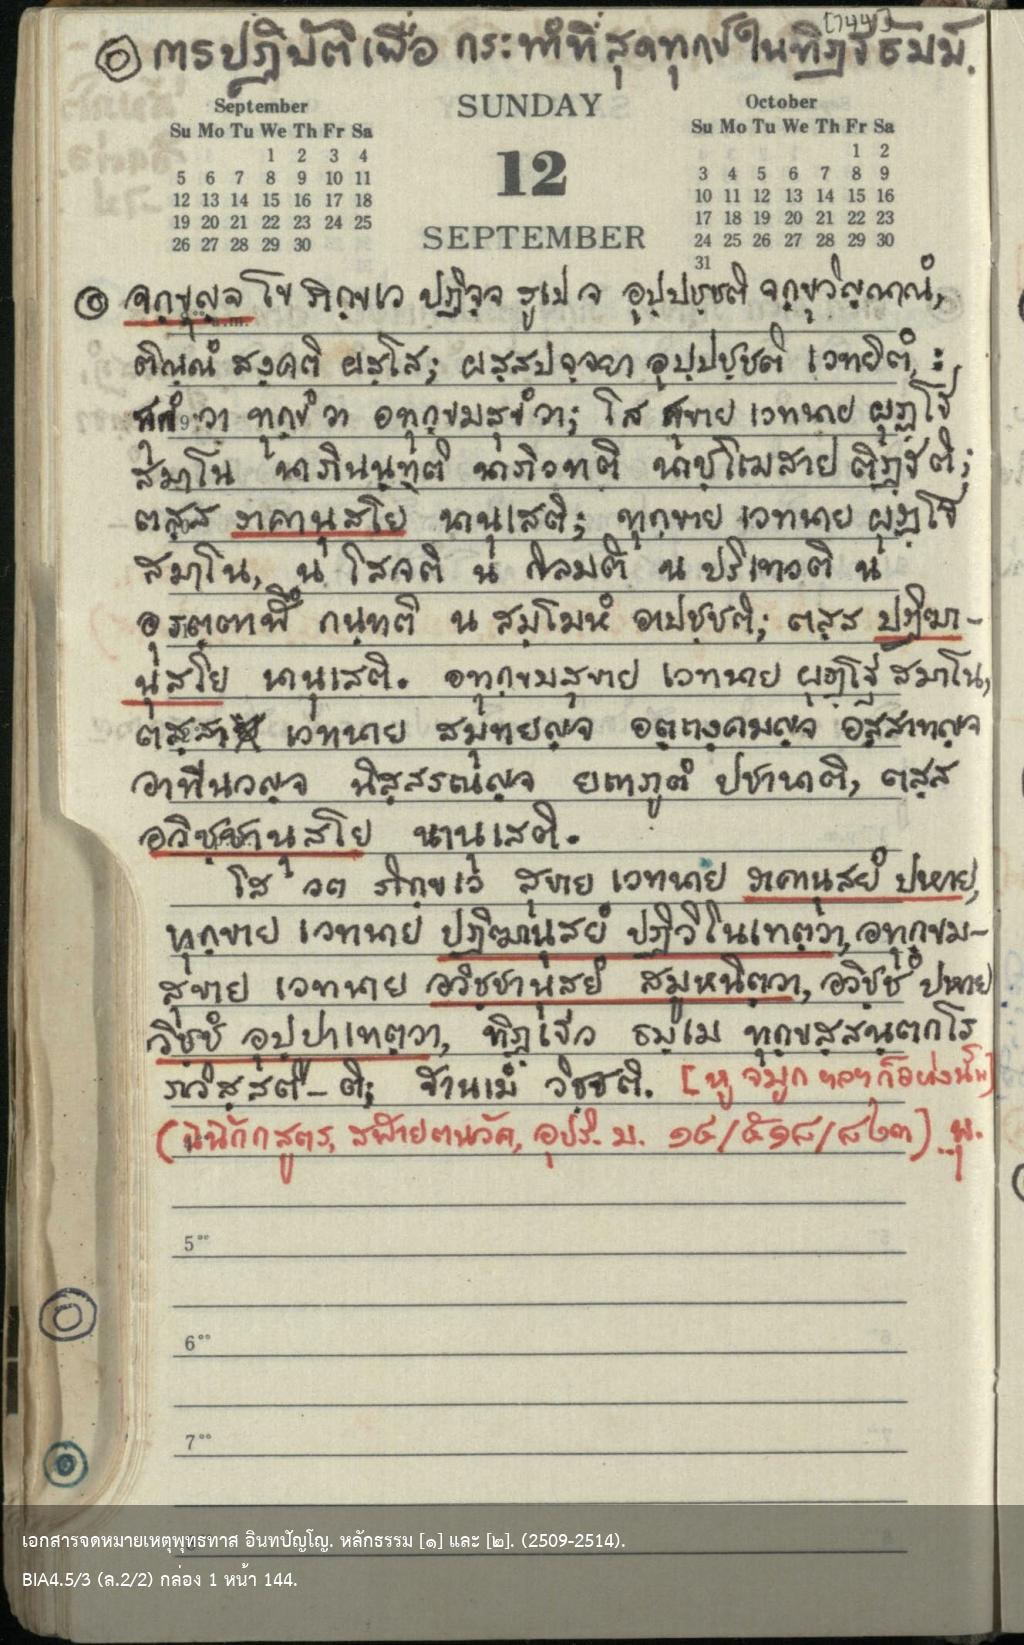 [144]
การปฏิบัติเพื่อ กระทำที่สุดทุกข์ในทิฏฐธัมม์.
September
SUNDAY
October
Su Mo Tu We Th Fr Sa
1 2 3 4
5 6 7 8 9 10 11
12 13 14 15 16 17 18
19 20 21 22 23 24 25
26 27 28 29 30
12
SEPTEMBER
Su Mo Tu We Th Fr Sa
1 2
3 4 5 6 7 8 9
10 11 12 13 14 15 16
17 18 19 20 21 22 23
24 25 26 27 28 29 30
31
จกฺขุญฺจ โข ภิกฺขเว ปฏิจฺจ รูเป จ อุปฺปชฺชติ จกฺขุวิญฺญาณํ,
ติณฺณํ สงฺคติ ผสฺโส; ผสฺสปจฺจยา อุปฺปชฺชติ เวทยิตํ :
สุขํ วา ทุกฺขํ วา อทุกฺขมสุขํ วา; โส สุขาย เวทนาย ผุฏฺโฐ
สมาโน นาภินนฺทติ นาภิวทติ นาชฺโฌสาย ติฏฺฐติ;
ตสฺส ราคานุสโย นานุเสติ; ทุกฺขาย เวทนาย ผุฏฺโฐ
สมาโน, น โสจติ น กิลมติ น ปริเทวติ น
อุรตฺตาฬึ กนฺทติ น สมฺโมหํ อาปชฺชติ; ตสฺส ปฏิฆา-
นุสโย นานุเสติ. อทุกฺขมสุขาย เวทนาย ผุฏฺโฐ สมาโน,
ตสฺสา เวทนาย สมุทยญฺจ อตฺถงฺคมญฺจ อสฺสาทญฺจ
อาทีนวญฺจ นิสฺสรณญฺจ ยถาภูตํ ปชานาติ, ตสฺส
อวิชฺชานุสโย นานุเสติ.
โส วต ภิกฺขเว สุขาย เวทนาย ราคานุสยํ ปหาย,
ทุกฺขาย เวทนาย ปฏิฆานุสยํ ปฏิวิโนเทตฺวา, อทุกฺขม-
สุขาย เวทนาย อวิชฺชานุสยํ สมูหนิตฺวา, อวิชฺชํ ปหาย
วิชฺชํ อุปฺปาเทตฺวา, ทิฏฺเฐว ธมฺเม ทุกฺขสฺสนฺตกโร
ภวิสฺสตี-ติ; ฐานเมตํ วิชฺชติ. [หู จมูก ฯลฯ ก็อย่างนั้น]
สฬายตนวัค, อุปริ. ม. ๑๔/๕๑๘/๘๒๓) พ.
5°°
6°°
7°°
เอกสารจดหมายเหตุพุทธทาส อินทปัญโญ. หลักธรรม [๑] และ [๒]. (2509-2514).
BIA4.5/3 (ล.2/2) กล่อง 1 หน้า 144.